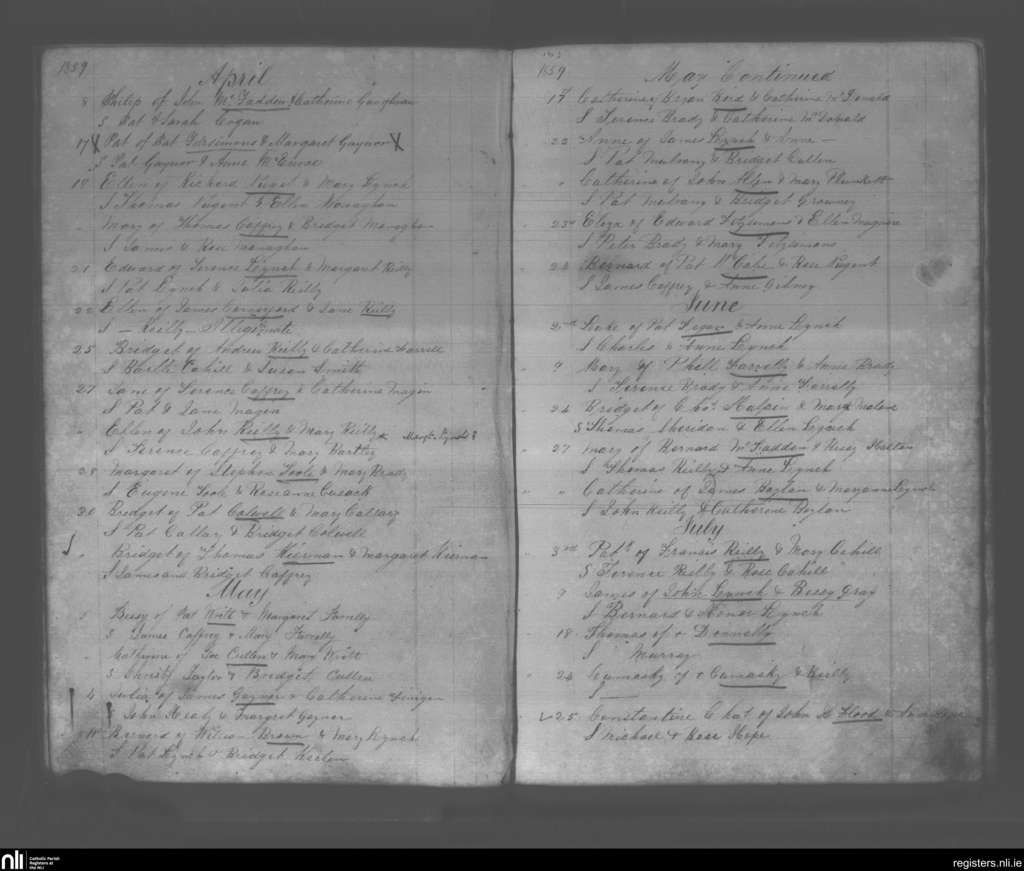 1859
April
8 Philip of John McFadden & Catherine Gaughran
S Pat & Sarah Cogan
17 X Pat of Pat Fitzsimons & Margaret Gaynor X
S Pat Gaynor & Anne
18 Ellen of Richard Nugent & Mary Lynch
S Thomas Nugent & Ellen Monaghan
" Mary of Thomas Caffrey & Bridget Monaghan
S James & Rose Monaghan
21 Edward of Terence Lynch & Margaret Reilly
S Pat Lynch & Julia Reilly
22 Ellen of James & Jane Reilly
S — Reilly — Illigitmate
25 Bridget of Andrew Reilly & Catherine Farrell
S Bartle Cahill & Susan Smith
27 Jane of Terence Caffrey & Catherine Magen
S Pat & Jane Magen
" Ellen of John Reilly & Mary Reilly x Margt Reynolds
S Terence Caffrey & Mary Bartley
28 Margaret of Stephen Toole & Mary Brady
S Eugene Toole & Roseanne Cusack
30 Bridget of Pat Colwell & Mary Callary
S Pat Callary & Bridget Colwell
" Bridget of Thomas Kiernan & Margaret Kiernan
S James and Bridget Caffrey
May
1 Bessy of Pat & Margaret Farrelly
S James Caffrey & Mary Farrelly
" Catherine of Cullen & Mary
S Christy Taylor & Bridget Cullen
4 Julia of James Gaynor & Catherine Finigan
S John Healy & Margreet Gaynor
11 Bernard of William Brown & Mary Lynch
S Pat Lynch & Bridget
1859
May Continued
17 Catherine of Bryan Bird & Catherine McDonald
S Terence Brady & Catherine McDonald
22 Anne of James Lynch & Anne —
S Pat Mulvany & Bridget Cullen
" Catherine of John Allen & Mary Plunkett
S Pat Mulvany & Bridget Growney
23rd Eliza of Edward Fitzsimons & Ellen Maguire
S Peter Brady & Mary Fitzsimons
24 Bernard of Pat McCabe & Rose Nugent
S James Caffrey & Anne
June
5th Luke of Pat & Anne Lynch
S Charles & Anne Lynch
9 Mary of Phell Farrelly & Anne Brady
S Terence Brady & Anne Farrelly
24 Bridget of Chas & Mary Malone
S Thomas Sheridan & Ellen Lynch
27 Mary of Bernard McFadden & Rose
S Thomas Reilly & Anne Lynch
" " Catherine of James Boylan & Maryanne Lynch
S John Reilly & Catherine Boylan
July
3rd Patk of Francis Reilly & Mary Cahill
S Terence Reilly & Rose Cahill
9 James of John Lynch & Bessy Gray
S Bernard & Honor Lynch
18 Thomas of + Donnelly
S Murray
24 of + & Reilly
25 Constantine of John Flood &
S Michael & Rose
nli
Catholic Parish
Registers at
the NLI
registers.nli.ie